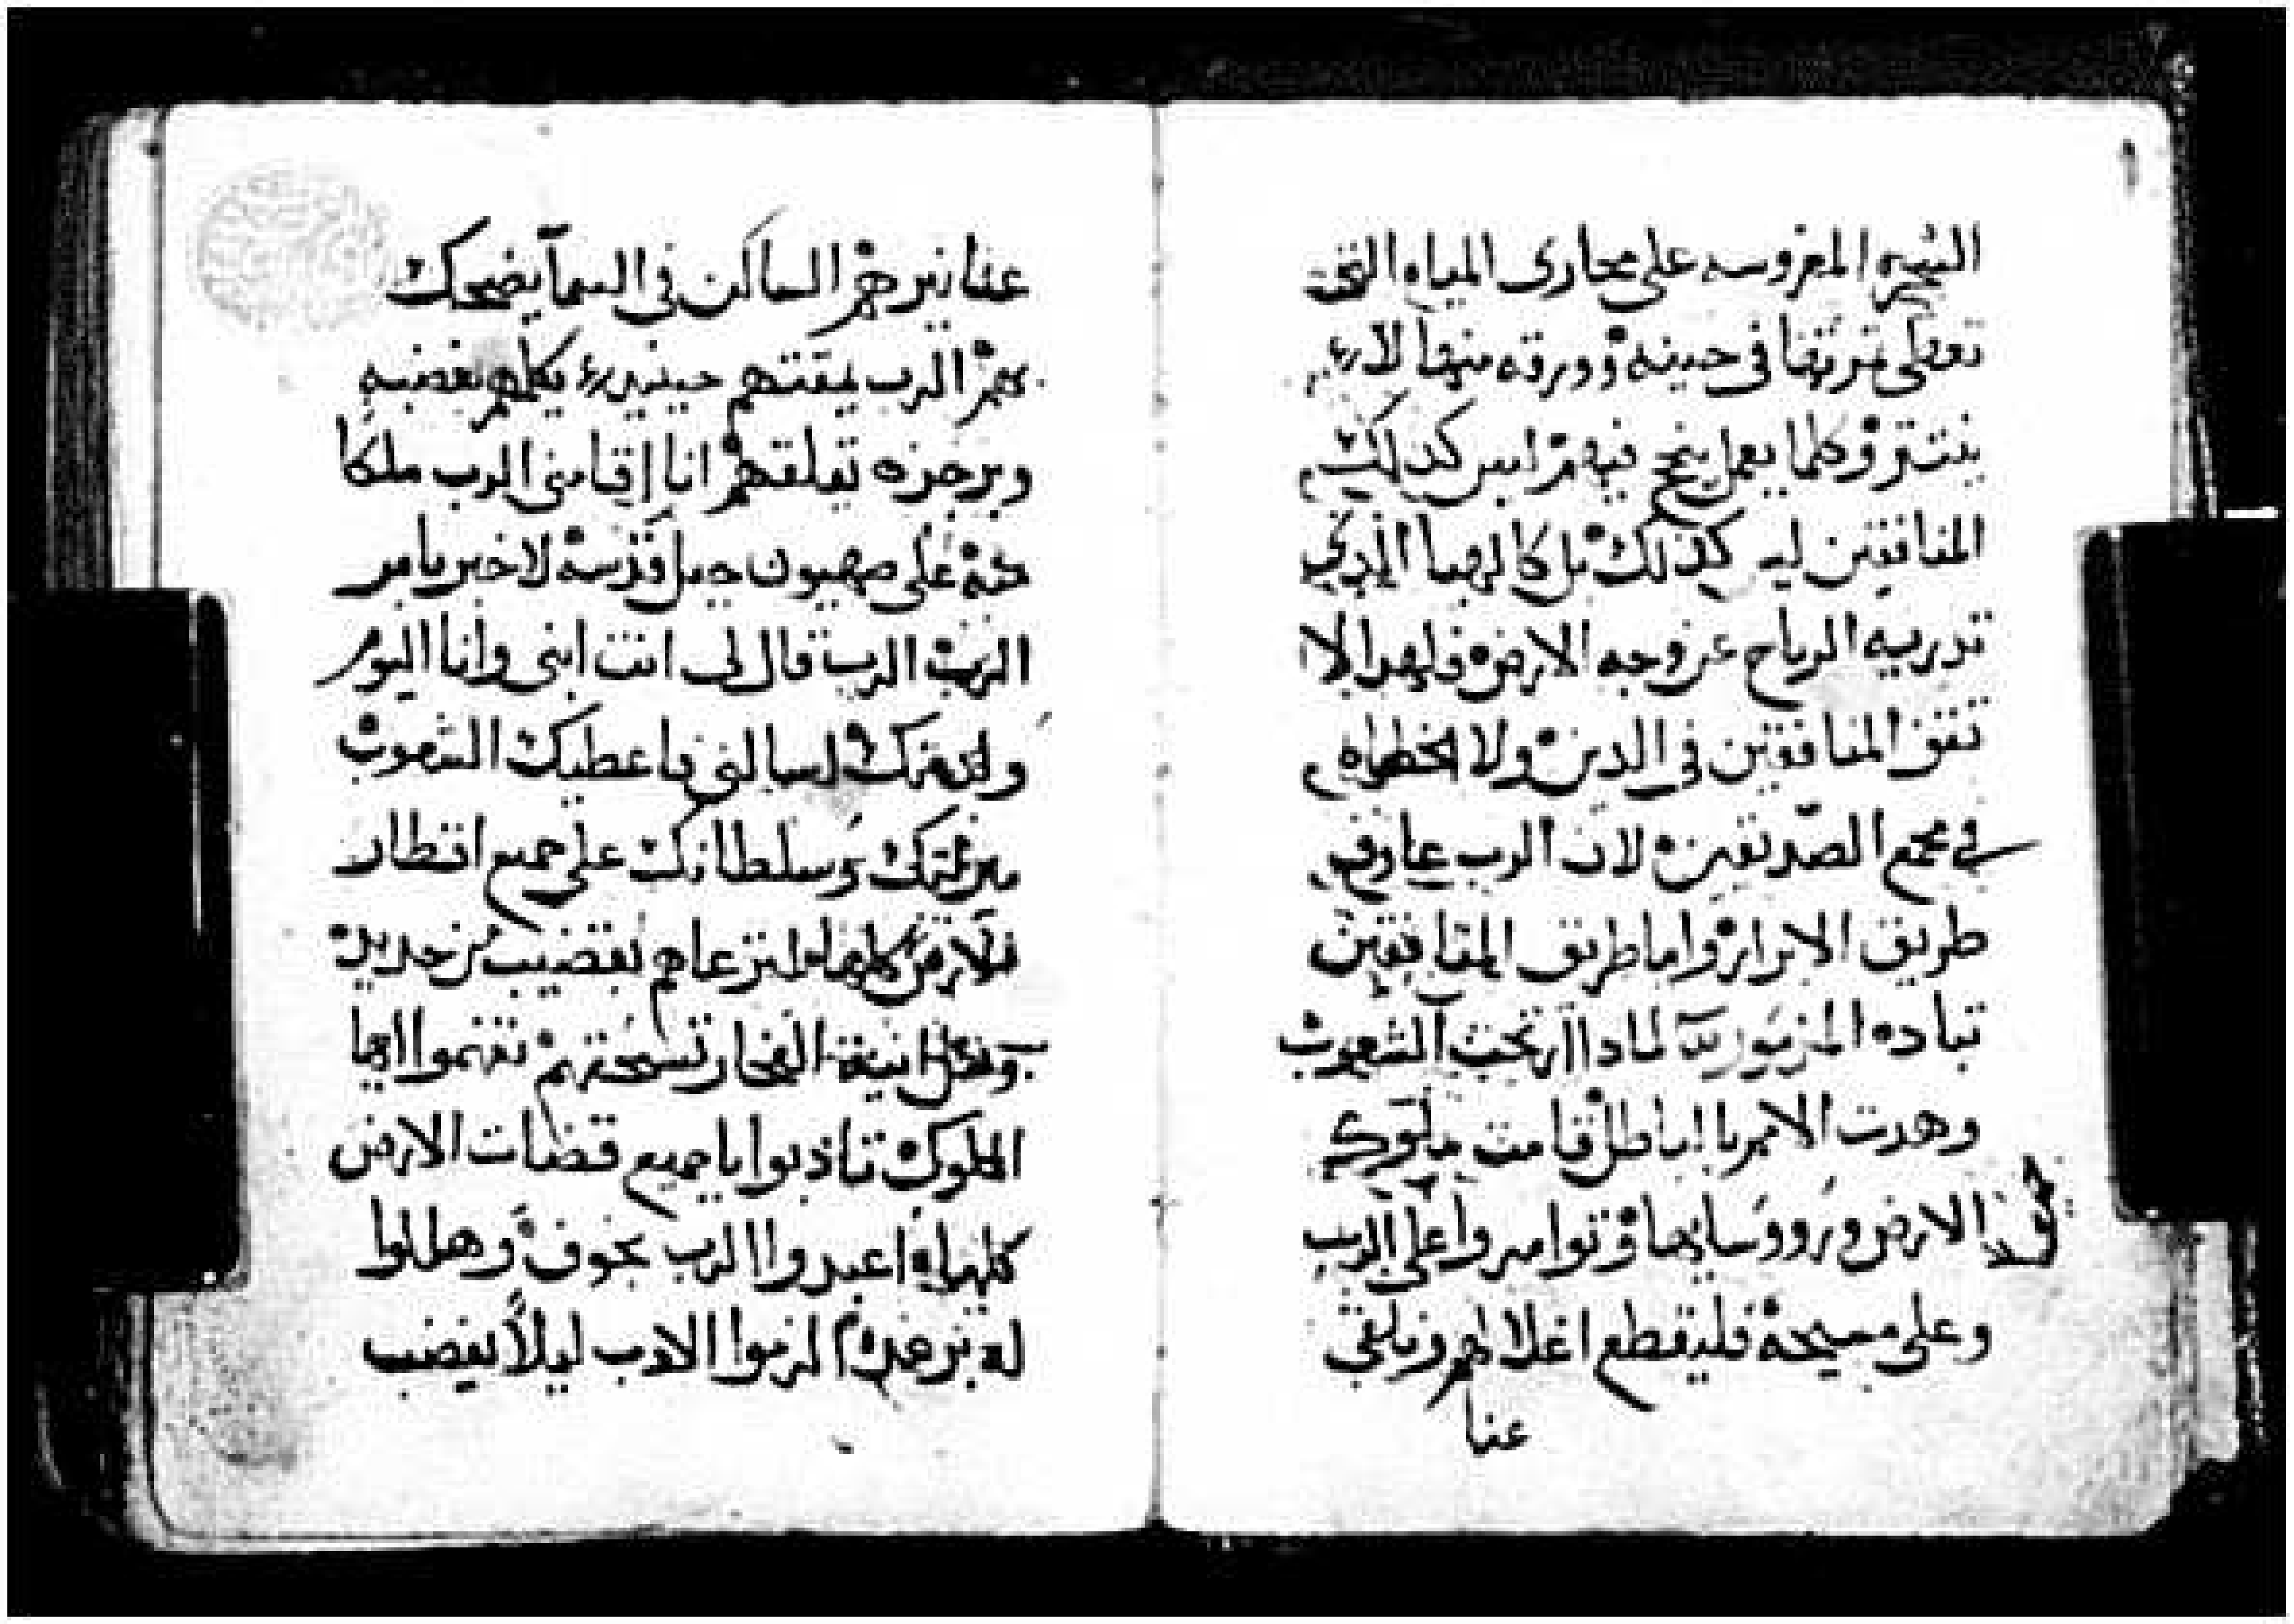 ١
الشجره المغروسه على مجارى المياه التى
تعطى ثمرتها فى حينه وورقه منها لا
ينتثر وكلما يعمل ينجح فيه ليس كذلك
المنافقين ليس كذلك بل كالهبا الذي
تدريه الرياح عن وجه الارض فلهدا لا
تقف المنافقين في الدين ولا الخطاه
في مجمع الصديقين لان الرب عارف
طريق الابرار واما طريق المنافقين
تباده المزمور لمادا ارتجت الشعوب
وهدت الامم بالباطل قامت ملوك
الارض ورووسايها وتوامروا على الرب
وعلى مسيحه فليقطع اغلالهم ونلقى
عنا
عنا نيرهم الساكن في السما يضحك
بهم الرب يمقتهم حينيد يكلمهم بغضبه
وبرجزه تقلقهم انا اقامنى الرب ملكا
منه على صهيون جبل قدسه لاخبر بامر
الرب الرب قال لى انت ابنى وانا اليوم
ولدتك اسالنى فاعطيك الشعوب
ميرثك وسلطانك على جميع اقطار
الارض كلها لترعاهم بقضيب من حديد
ومثل انية الفخار تسحقهم تفهموا ايها
الملوك تادبوا يا جميع قضات الارض
كلها اعبدوا الرب بخوف وهللوا
له برعده الزموا الادب ليلا يغضب